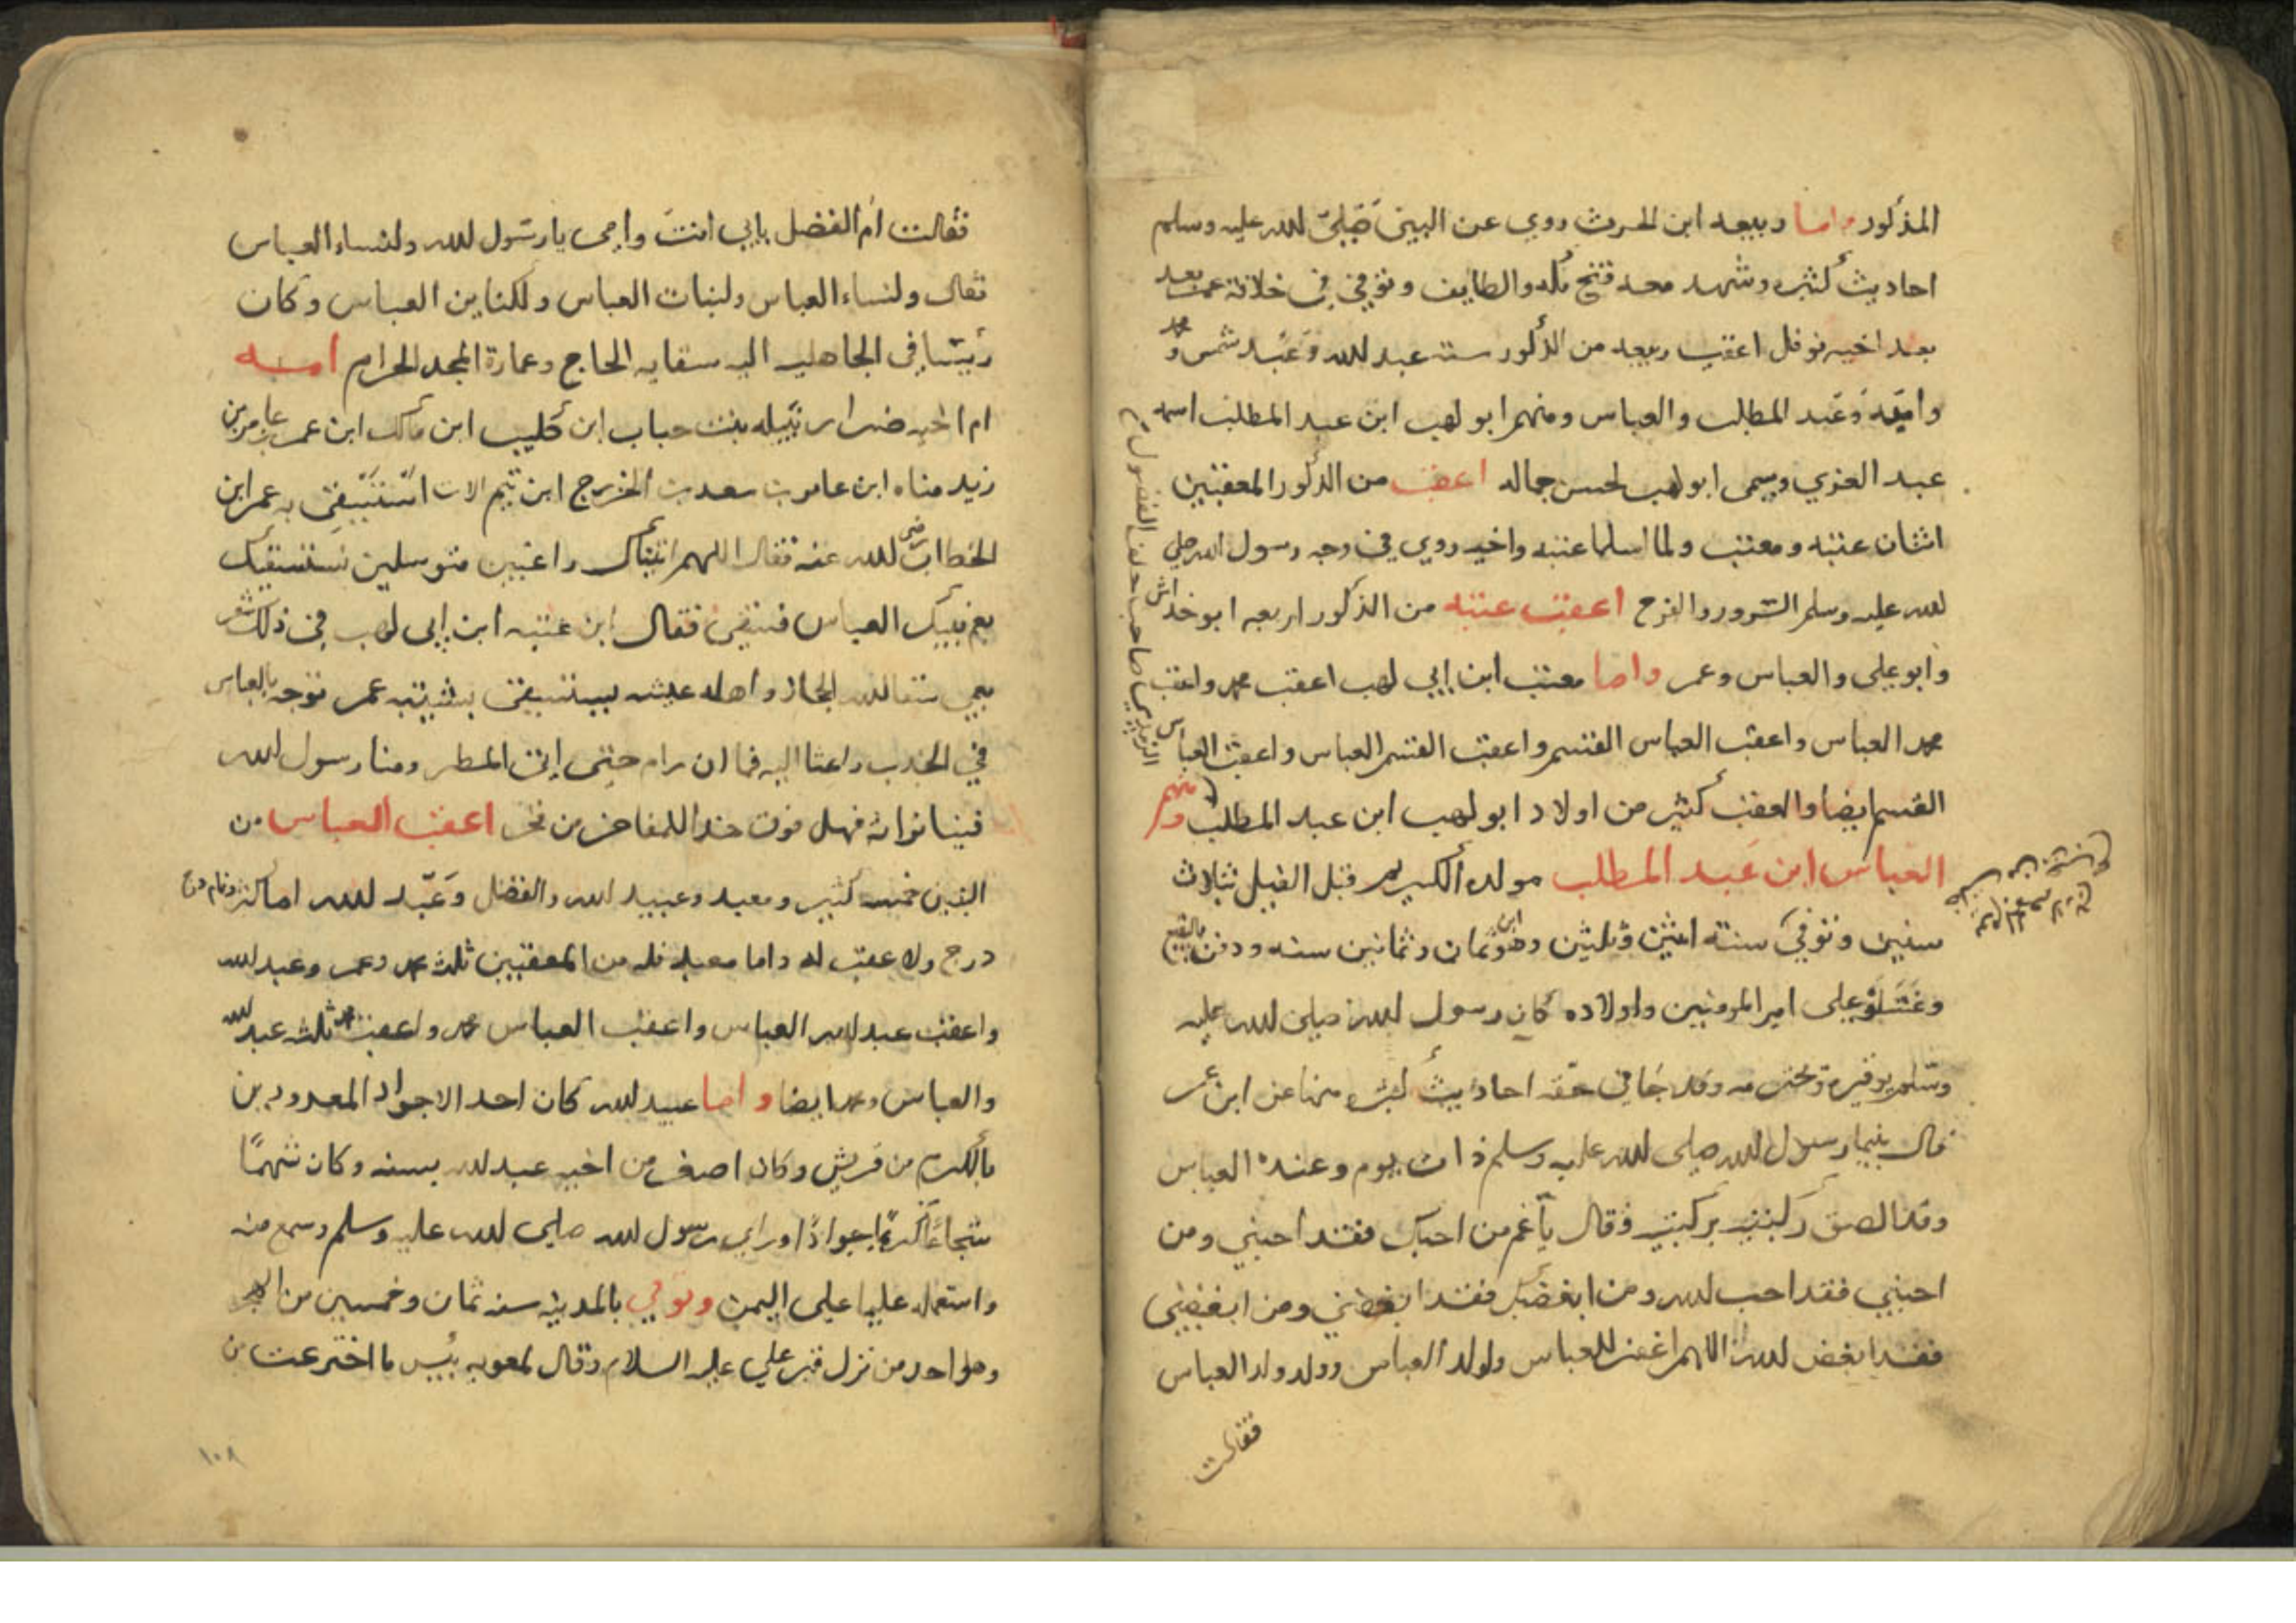 المذكور واما ربيعه ابن الحرث روي عن النبي صلى الله عليه وسلم
احاديث كثيره وشهد معه فتح مكه والطايف وتوفي في خلافة عمر بعد
بعد اخيه نوفل اعقب ربيعه من الذكور ستة عبد الله وعبد شمس و محمد
واميه وعبد المطلب والعباس ومنهم ابو لهب ابن عبد المطلب اسمه
عبد العزي ويسمى ابو لهب لحسن جماله اعقب من الذكور المعقبين
اثنان عتبه ومعتب ولما اسلما عتبه واخيه روي في وجه رسول الله صلى
الله عليه وسلم السرور والفرح اعقب عتبه من الذكور اربعه ابو خداش
وابو علي والعباس وعمر واما معتب ابن ابي لهب اعقب محمد واعقب
محمد العباس واعقب العباس القسم واعقب القسم العباس واعقب العباس
القسم ايضا والعقب كثير من اولاد ابو لهب ابن عبد المطلب ومنهم
العباس ابن عبد المطلب مولده الكريم قبل الفيل بثلاث
سنين وتوفي سنة اثنين وثلثين وهو ابن ثمان وثمانين سنه ودفن بالبقيع
وغسلوه علي امير المومنين واولاده كان رسول الله صلى الله عليه
وسلم يوقره وقد جا في حقه احاديث كثيره منها عن ابن عمر
قال بينما رسول الله صلى الله عليه وسلم ذات يوم وعنده العباس
وقد الصق ركبته بركبته فقال يا عم من احبك فقد احبني ومن
احبني فقد احب الله ومن ابغضك فقد ابغضني ومن ابغضني
فقد ابغض الله اللهم اغفر للعباس ولولد العباس وولد ولد العباس
فقالت
فقالت ام الفضل بابي انت وامي يا رسول الله ولنساء العباس
فقال ولنساء العباس ولبنات العباس ولكناين العباس وكان
رييسا في الجاهليه اليه سقايه الحاج وعمارة المسجد الحرام امه
ام اخيه ضرار نتيله بنت حباب ابن كليب ابن مالك ابن عمر عامر بن
زيد مناه ابن عامر بن سعد بن الخزرج ابن تيم الات استسقى به عمر ابن
الخطاب رضى الله عنه فقال اللهم اتيناك راغبين متوسلين نستسقيك
بعم نبيك العباس فسقى فقال ابن عتبه ابن ابي لهب في ذلك شعر
بعمي سقا الله الحجاز واهله عشيه يستسقي بشيبته عمر توجه بالعباس
في الجدب راغبا اليه فما ان رام حتى اتى المطر ومنا رسول الله
فينا تراثه فهل فوق هذا للمفاخر من فخر اعقب العباس من
البنين خمسه كثير ومعبد وعبيد الله والفضل وعبد الله اما كثير وتمام درج
درج ولا عقب له واما معبد فله من المعقبين ثلثه محمد وعمر وعبد الله
واعقب عبد الله العباس واعقب العباس محمد واعقب محمد ثلثه عبد الله
والعباس ومحمد ايضا واما عبيد الله كان احد الاجواد المعدودين
بالكرم من قريش وكان اصغر من اخيه عبد الله بسنه وكان شهما
شجاعا كريما جوادا وراى رسول الله صلى الله عليه وسلم وسمع منه
واستعمله عليا على اليمن وتوفي بالمدينه سنه ثمان وخمسين من
وهو احد من نزل قبر علي عليه السلام وقال لمعويه بئس ما اخترعت من
١٠٨